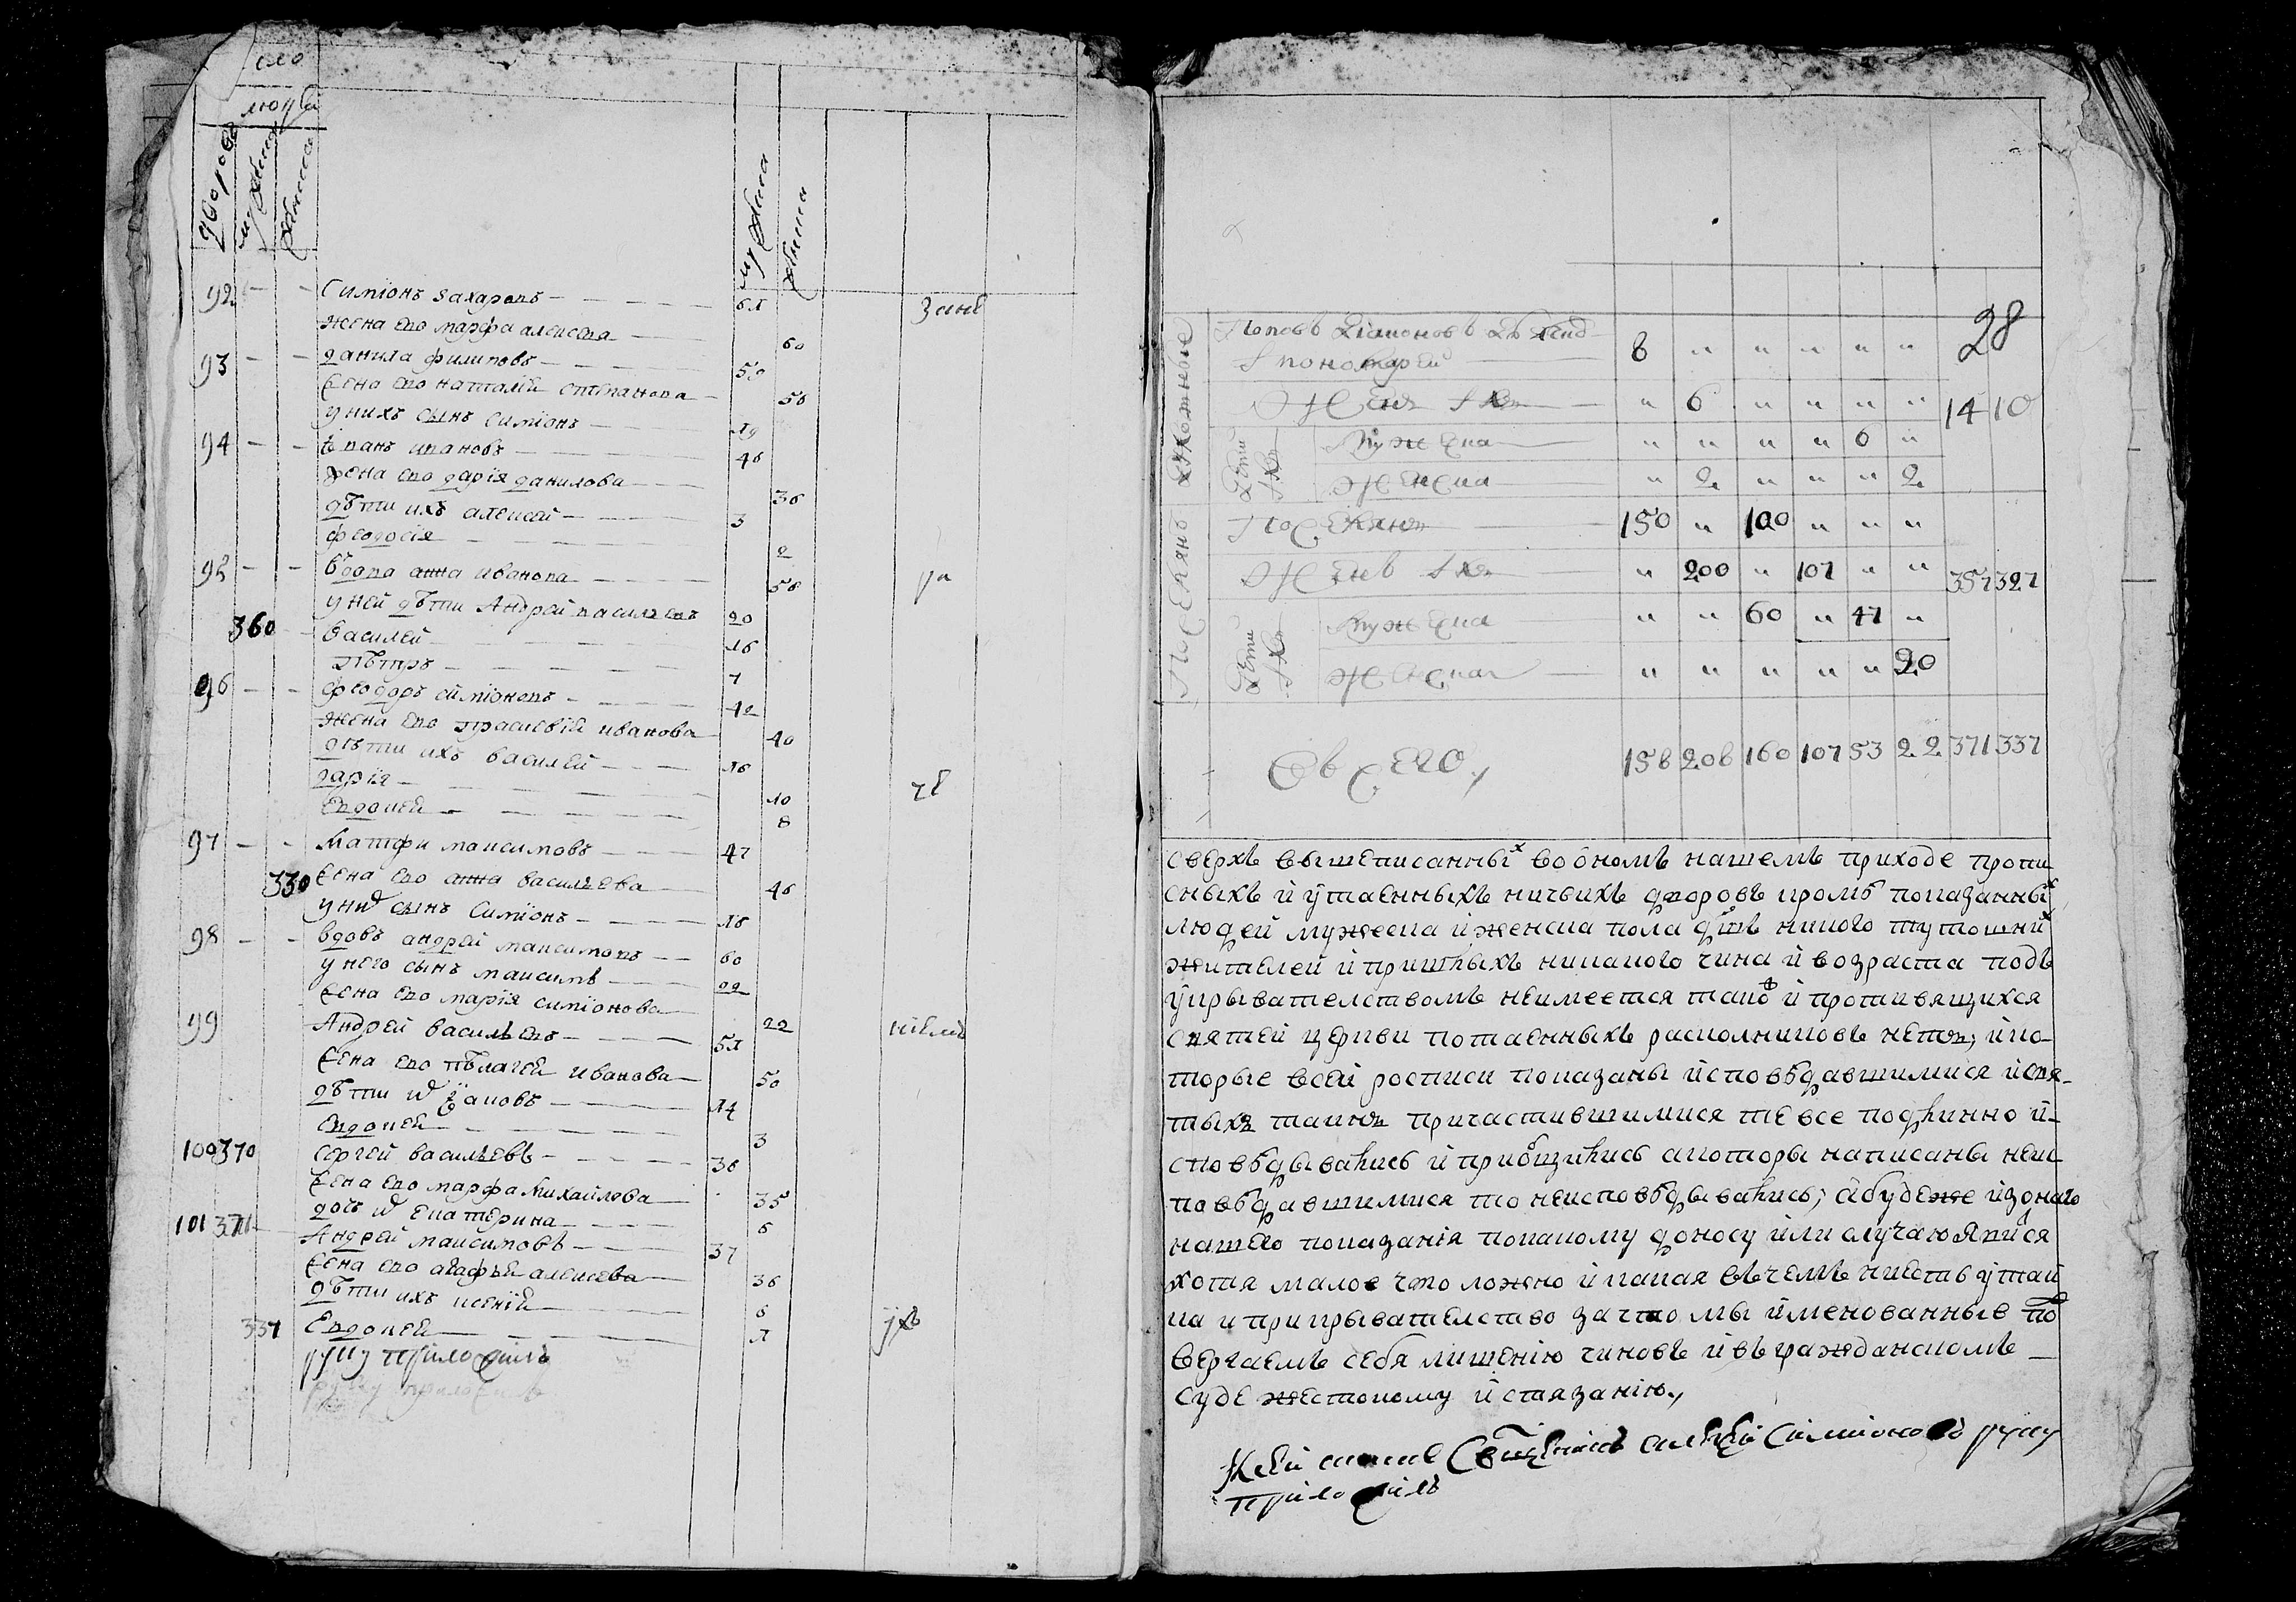 число
людей
дворовъ
мужеска
женска
мужеска
женска
92 - - Симіонъ захаровъ - 61
жена его марфа алексѣева - 60
93 - - данила филиповъ - 50
жена его наталія степанова - 50
у нихъ сынъ симіонъ - 19
94 - - іванъ ивановъ - 46
жена его дарія данилова - 36
дѣти ихъ алексей - 3
феодосія - 2
95 - - вдова анна иванова - 50
у ней дѣти Андрей васильевъ 20
360 - василей - 16
пѣтръ - 7
96 - - феодоръ симіоновъ - 42
жена его прасковія иванова - 40
дѣти ихъ василей - 16
дарія - 10
Евдокея - 8
97 - - Матфи максимовъ - 47
330 жена его анна васильева - 46
у них сынъ Симіонъ - 18
98 - - вдовъ андрей максимовъ - 60
у него сынъ максимъ - 22
жена его марія симіонова - 22
99 Андрей васильевъ - 51
жена его пѣлагея иванова - 50
дѣти их іаковъ - 14
Евдокея - 3
100 370 Сергей васильевъ - 36
жена его марфа михайлова - 35
дочь их Екатерина - 6
101 371 Андрей максимовъ - 37
жена его агафья алексева - 36
дѣти ихъ - 6
337 Евдокея - 1
руку приложилъ
руку приложилъ
28
Поповъ Діаконовъ
Пономарей 8 " " " " "
Женъ ихъ " 6 " " " " 14 10
Дети ихъ Мужеска " " " " 6 "
Женска " 2 " " " 2
Поселянъ 150 " 100 " " "
Женъ ихъ " 200 " 107 " " 357 327
Дети ихъ Мужеска " " 60 " 47 "
Женска " " " " " 20
Всего, 158 208 160 107 53 22 371 337
сверхъ вышеписанных во ономъ нашемъ приходе пропи
сныхъ и утаенныхъ ничьихъ дворовъ кромѣ показанных
людей мужеска и женска пола дшъ никого тутошних
жителей и пришлыхъ никакого чина и возраста подъ
укрывателствомъ неимеется такоѣ и противящихся
святей церкви потаенныхъ расколниковъ нетъ, и ко-
торые всей росписи показаны исповѣдавшимися и свя-
тыхъ таинъ причастившимися те все подлинно и-
споведывались и приобщились а которы написаны неис
поведавшимися то неисповедывались, а буде же из онаго
нашего показанія покакому доносу или случаю явится
хотя малое что ложно и какая въ чемъ нибеть утай
ка и прикрывателство за что мы именованные по
вергаемъ себя лишенію чиновъ и въ гражданскомъ
суде жестокому истязанію,
Ксей сказке Священникъ алексѣй Симионовъ руку
приложилъ